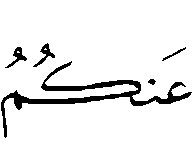 عَنكُمُ